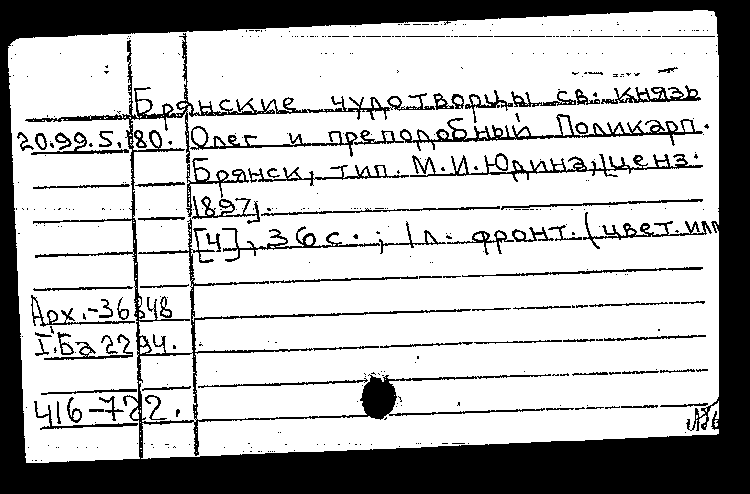 Брянские чудотворцы св. князь
20.99.5.180. Олег и преподобный Поликарп.
Брянск, тип. М.И.Юдина, [ценз.
1897].
[4], 36 с. ; 1 л. фронт. (цвет. илл
Арх.-36848
I.Ба 2294.
416-722.